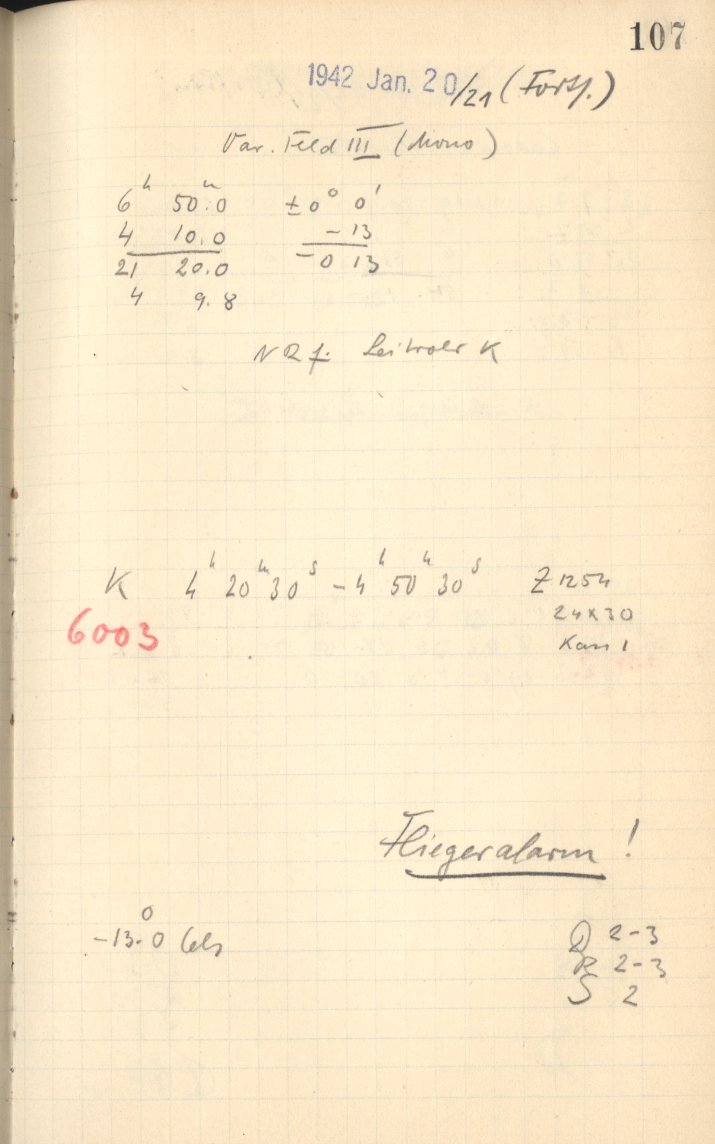 107
1942 Jan. 20/21 (Forts.)
Var. Feld III (Mono)
6ʰ 50ᵐ.0 ±0° 0'
4 10.0 -13
21 20.0 -0 13
4 9.8
K
K 4ʰ 20ᵐ 30ˢ - 4ʰ 50ᵐ 30ˢ Z 1254
6003 24x30
Kass 1
Fliegeralarm!
-13.°0 Cels
D 2-3
R 2-3
S 2